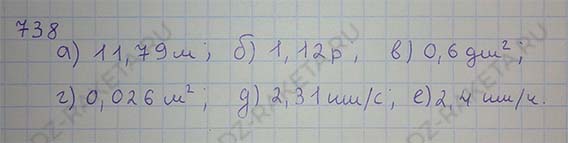 738
а) 11,79 м; б) 1,12 р; в) 0,6 дм²;
г) 0,026 м²; д) 2,31 км/с; е) 2,4 км/ч.
DZ-RAKETA.RU